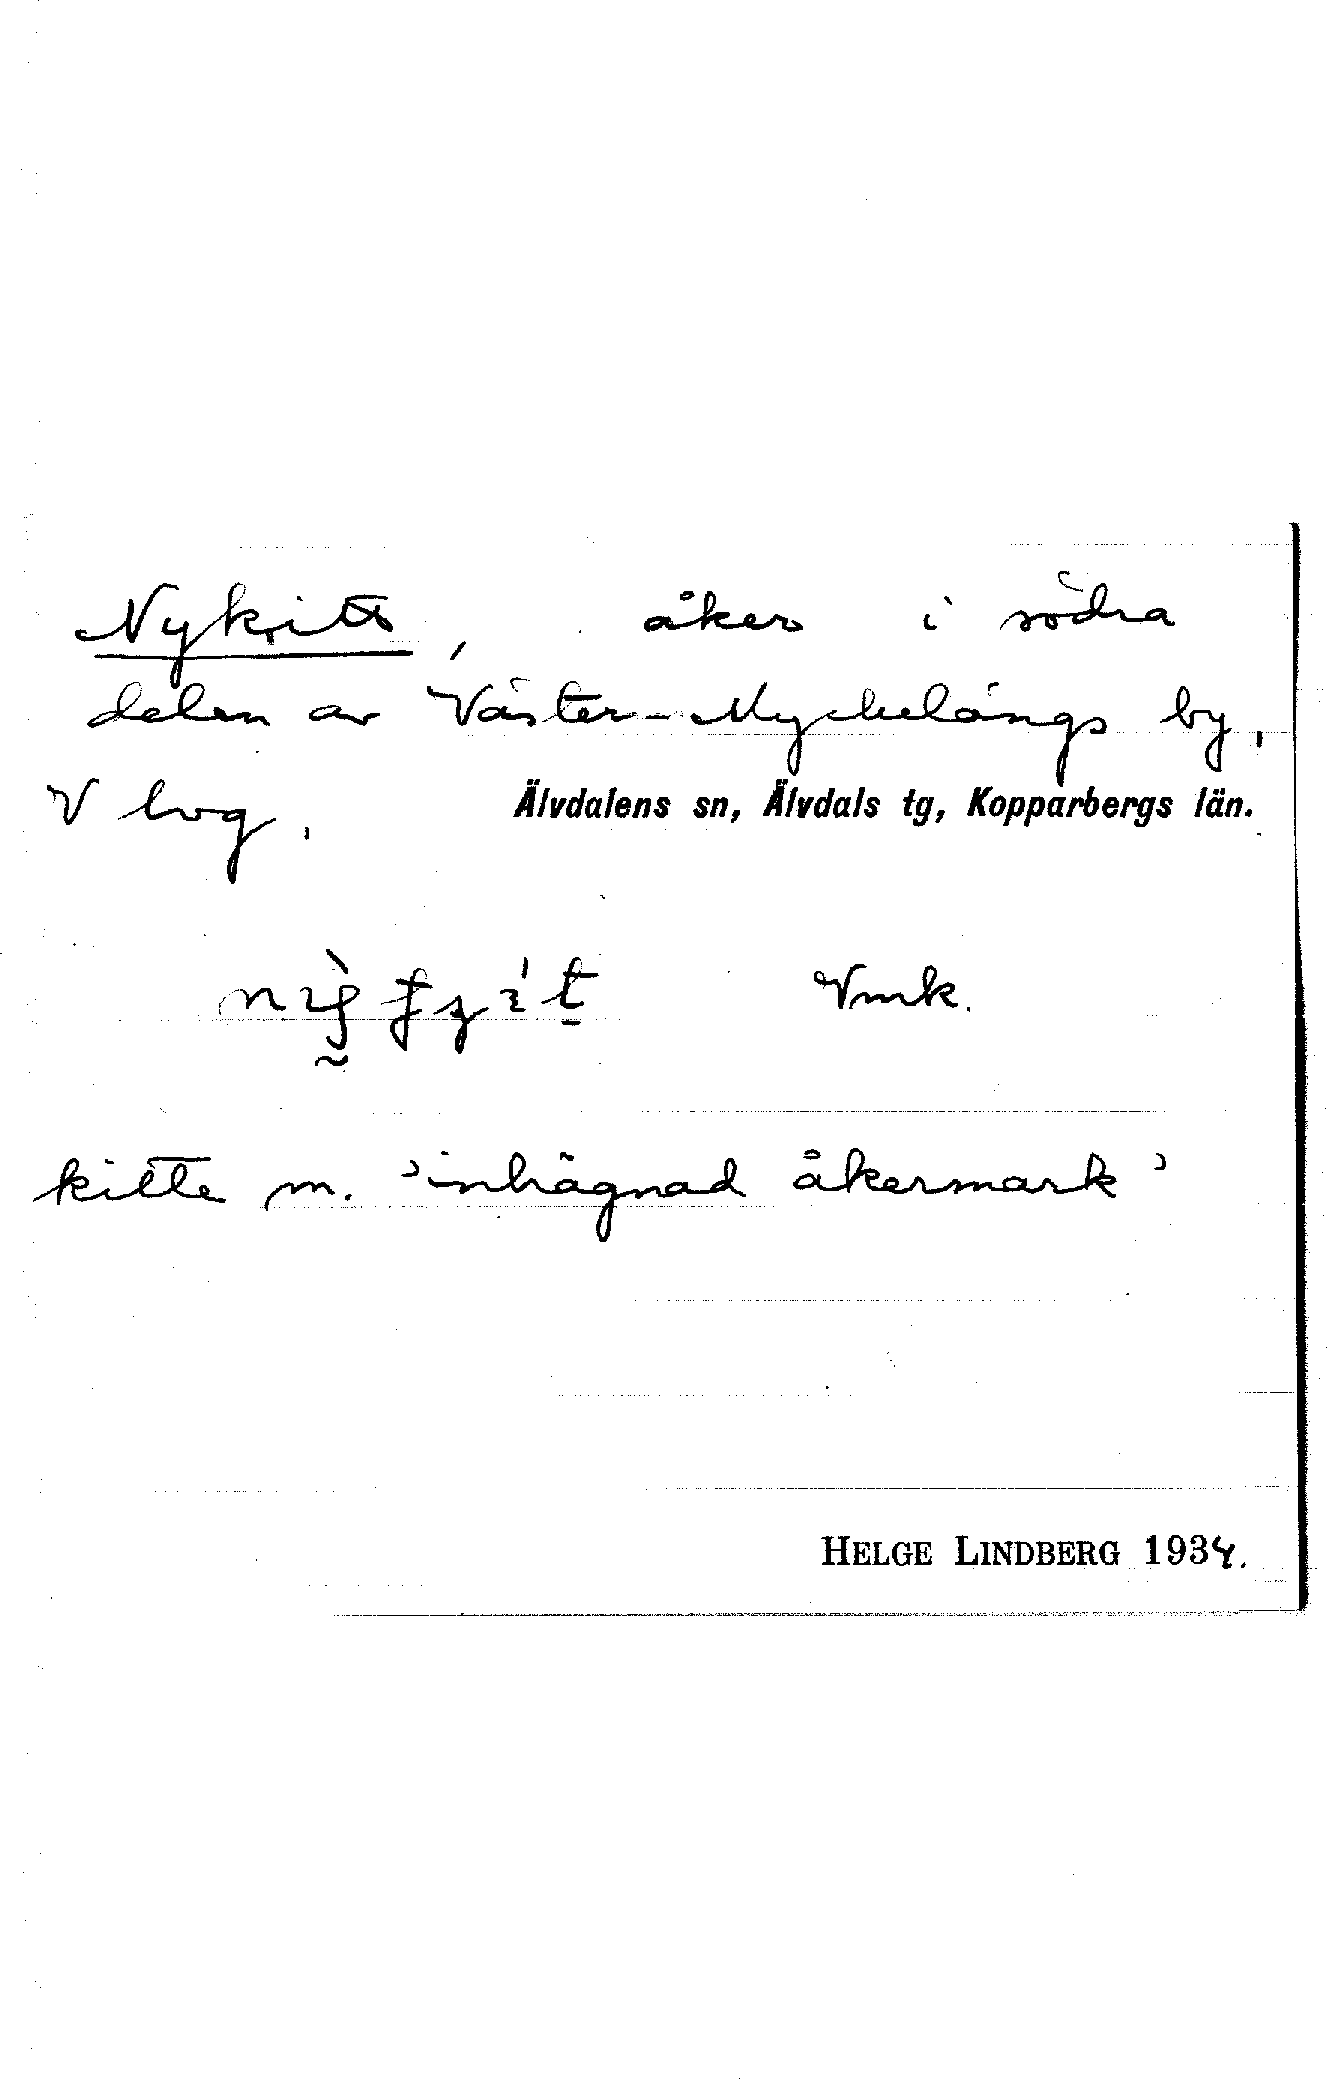 Nykitt, åker i södra
delen av Väster-Myckelängs by,
V lvg. Älvdalens sn, Älvdals tg, Kopparbergs län.
Vmk.
kitte m. 'inhägnad åkermark'
HELGE LINDBERG 1934.